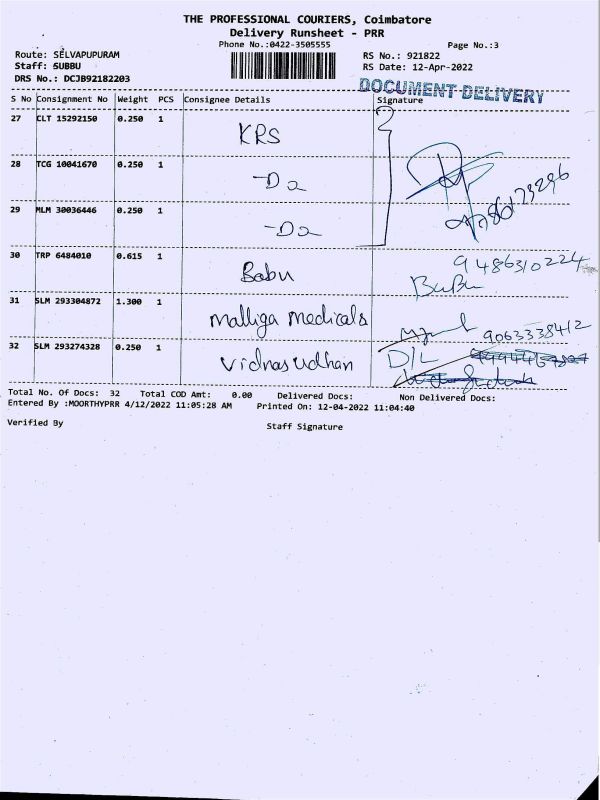 THE PROFESSIONAL COURIERS, Coimbatore
Delivery Runsheet - PRR
Phone No.:0422-3505555 Page No.:3
Route: SELVAPUPURAM RS No.: 921822
Staff: SUBBU RS Date: 12-Apr-2022
DRS No.: DCJB92182203 DOCUMENT DELIVERY
S No Consignment No Weight PCS Consignee Details Signature
27 CLT 15292150 0.250 1 KRS
28 TCG 10041670 0.250 1 -Do
29 MLM 30036446 0.250 1 -Do
30 TRP 6484010 0.615 1 Babu 9486310224
Babu
31 SLM 293304872 1.300 1 Malliga Medicals 9063338412
32 SLM 293274328 0.250 1 Vidnasudhan D/L
Total No. Of Docs: 32 Total COD Amt: 0.00 Delivered Docs: Non Delivered Docs:
Entered By :MOORTHYPRR 4/12/2022 11:05:28 AM Printed On: 12-04-2022 11:04:40
Verified By Staff Signature